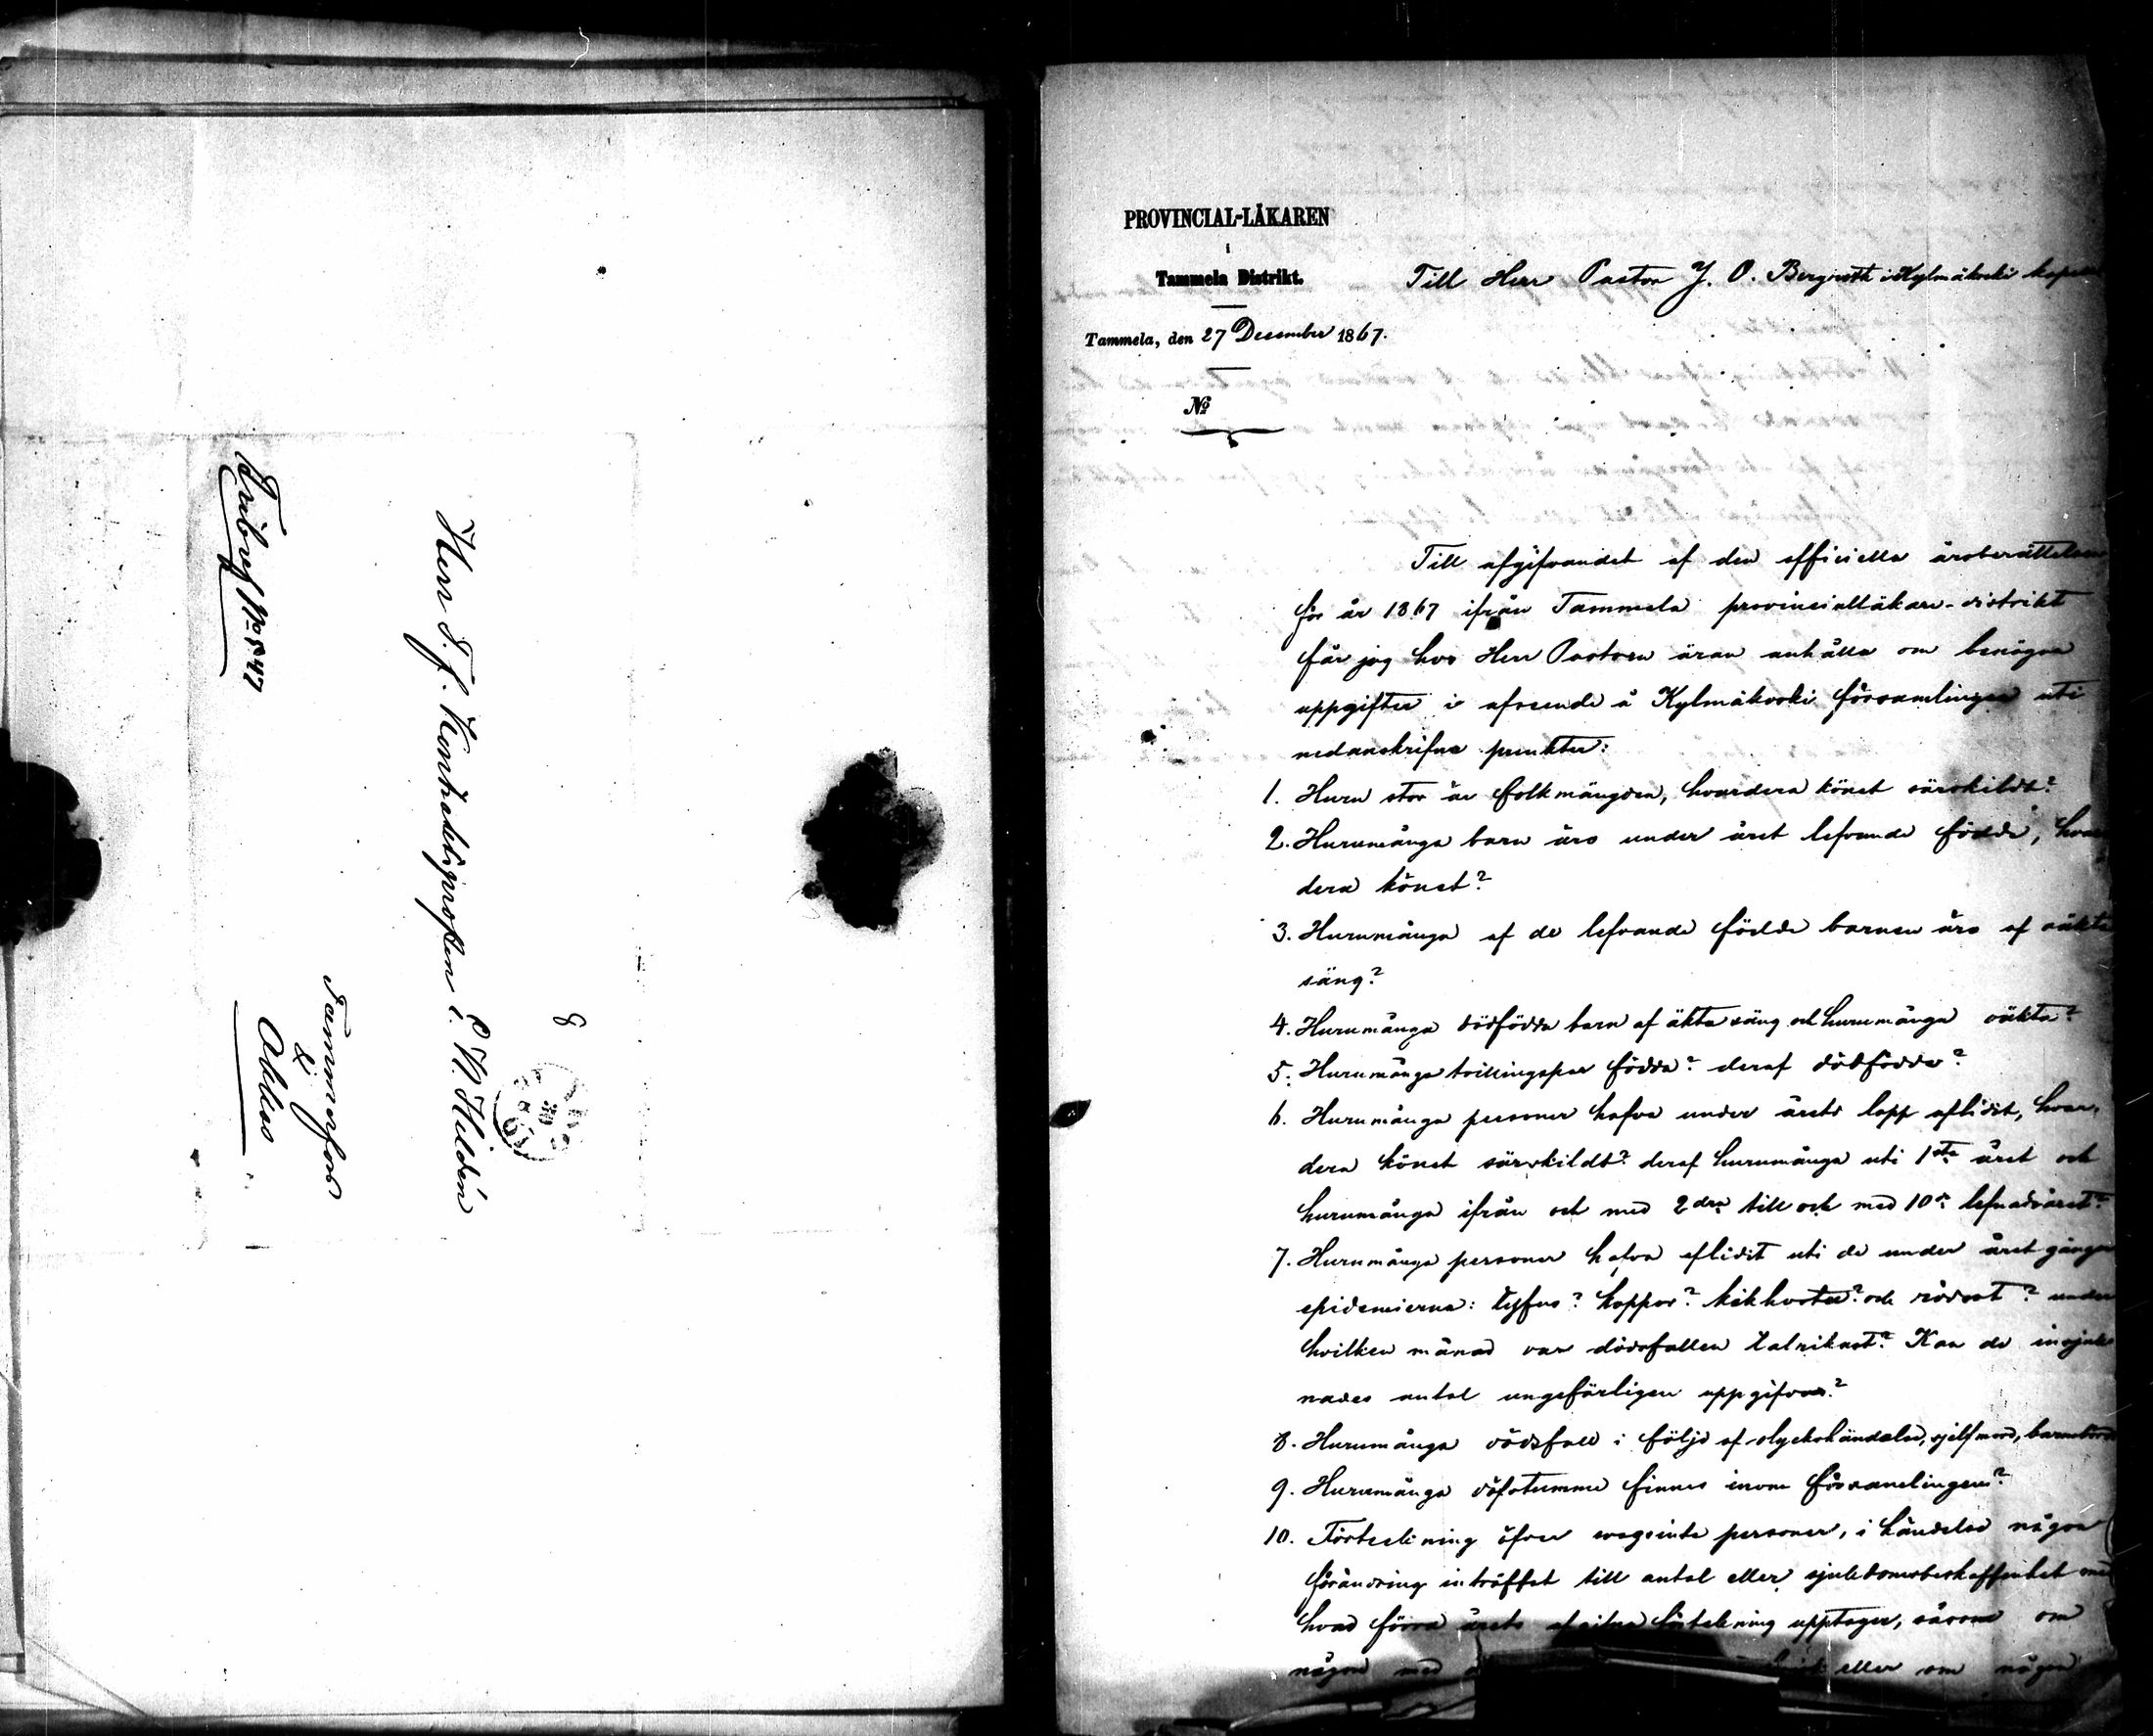 Fribref No 847
Herr T. f. Kontraktsprosten C. W. Heldén
Tammerfors
&
Akkas
8
PROVINCIAL-LÄKAREN
i
Tammela Distrikt.
Tammela, den 27 December 1867.
No
Till Herr Pastor J. O. Bergroth i Kylmäkoski kapell
Till afgifvandet af den officiella årsberättelsen
för år 1867 ifrån Tammela provincialläkare-distrikt
får jag hos Herr Pastorn äran anhålla om benägna
uppgifter i afseende å Kylmäkoski församlingen uti
nedanskrifne punkter:
1. Huru stor är folkmängden, hvardera könet särskildt?
2. Hurumånga barn äro under året lefvande födde, hvar
dera könet?
3. Hurumånga af de lefvande födde barnen äro af oäkta
säng?
4. Hurumånga dödfödda barn af äkta säng och hurumånga oäkta?
5. Hurumånga tvillingspar födda? deraf dödfödda?
6. Hurumånga personer hafva under årets lopp aflidit, hvar-
dera könet särskildt? deraf hurumånga uti 1sta året och
hurumånga ifrån och med 2dra till och med 10de lefnadsåret?
7. Hurumånga personer hafva aflidit uti de under året gångna
epidemierna: tyfus? koppor? kikhosta? och rödsot? under
hvilken månad var dödsfallen talrikast? Kan de insjuk
nades antal ungefärligen uppgifvas?
8. Hurumånga dödsfall i följd af olyckshändelse, sjelfmord, barnsbörd
9. Hurumånga döfstumme finnes inom församlingen?
10. Förteckning öfver vansinte personer, i händelse någon
förändring inträffat till antal eller sjukdomsbeskaffenhet med
hvad förra årets afgifna förteckning upptager, såsom om
någon med eller om någon